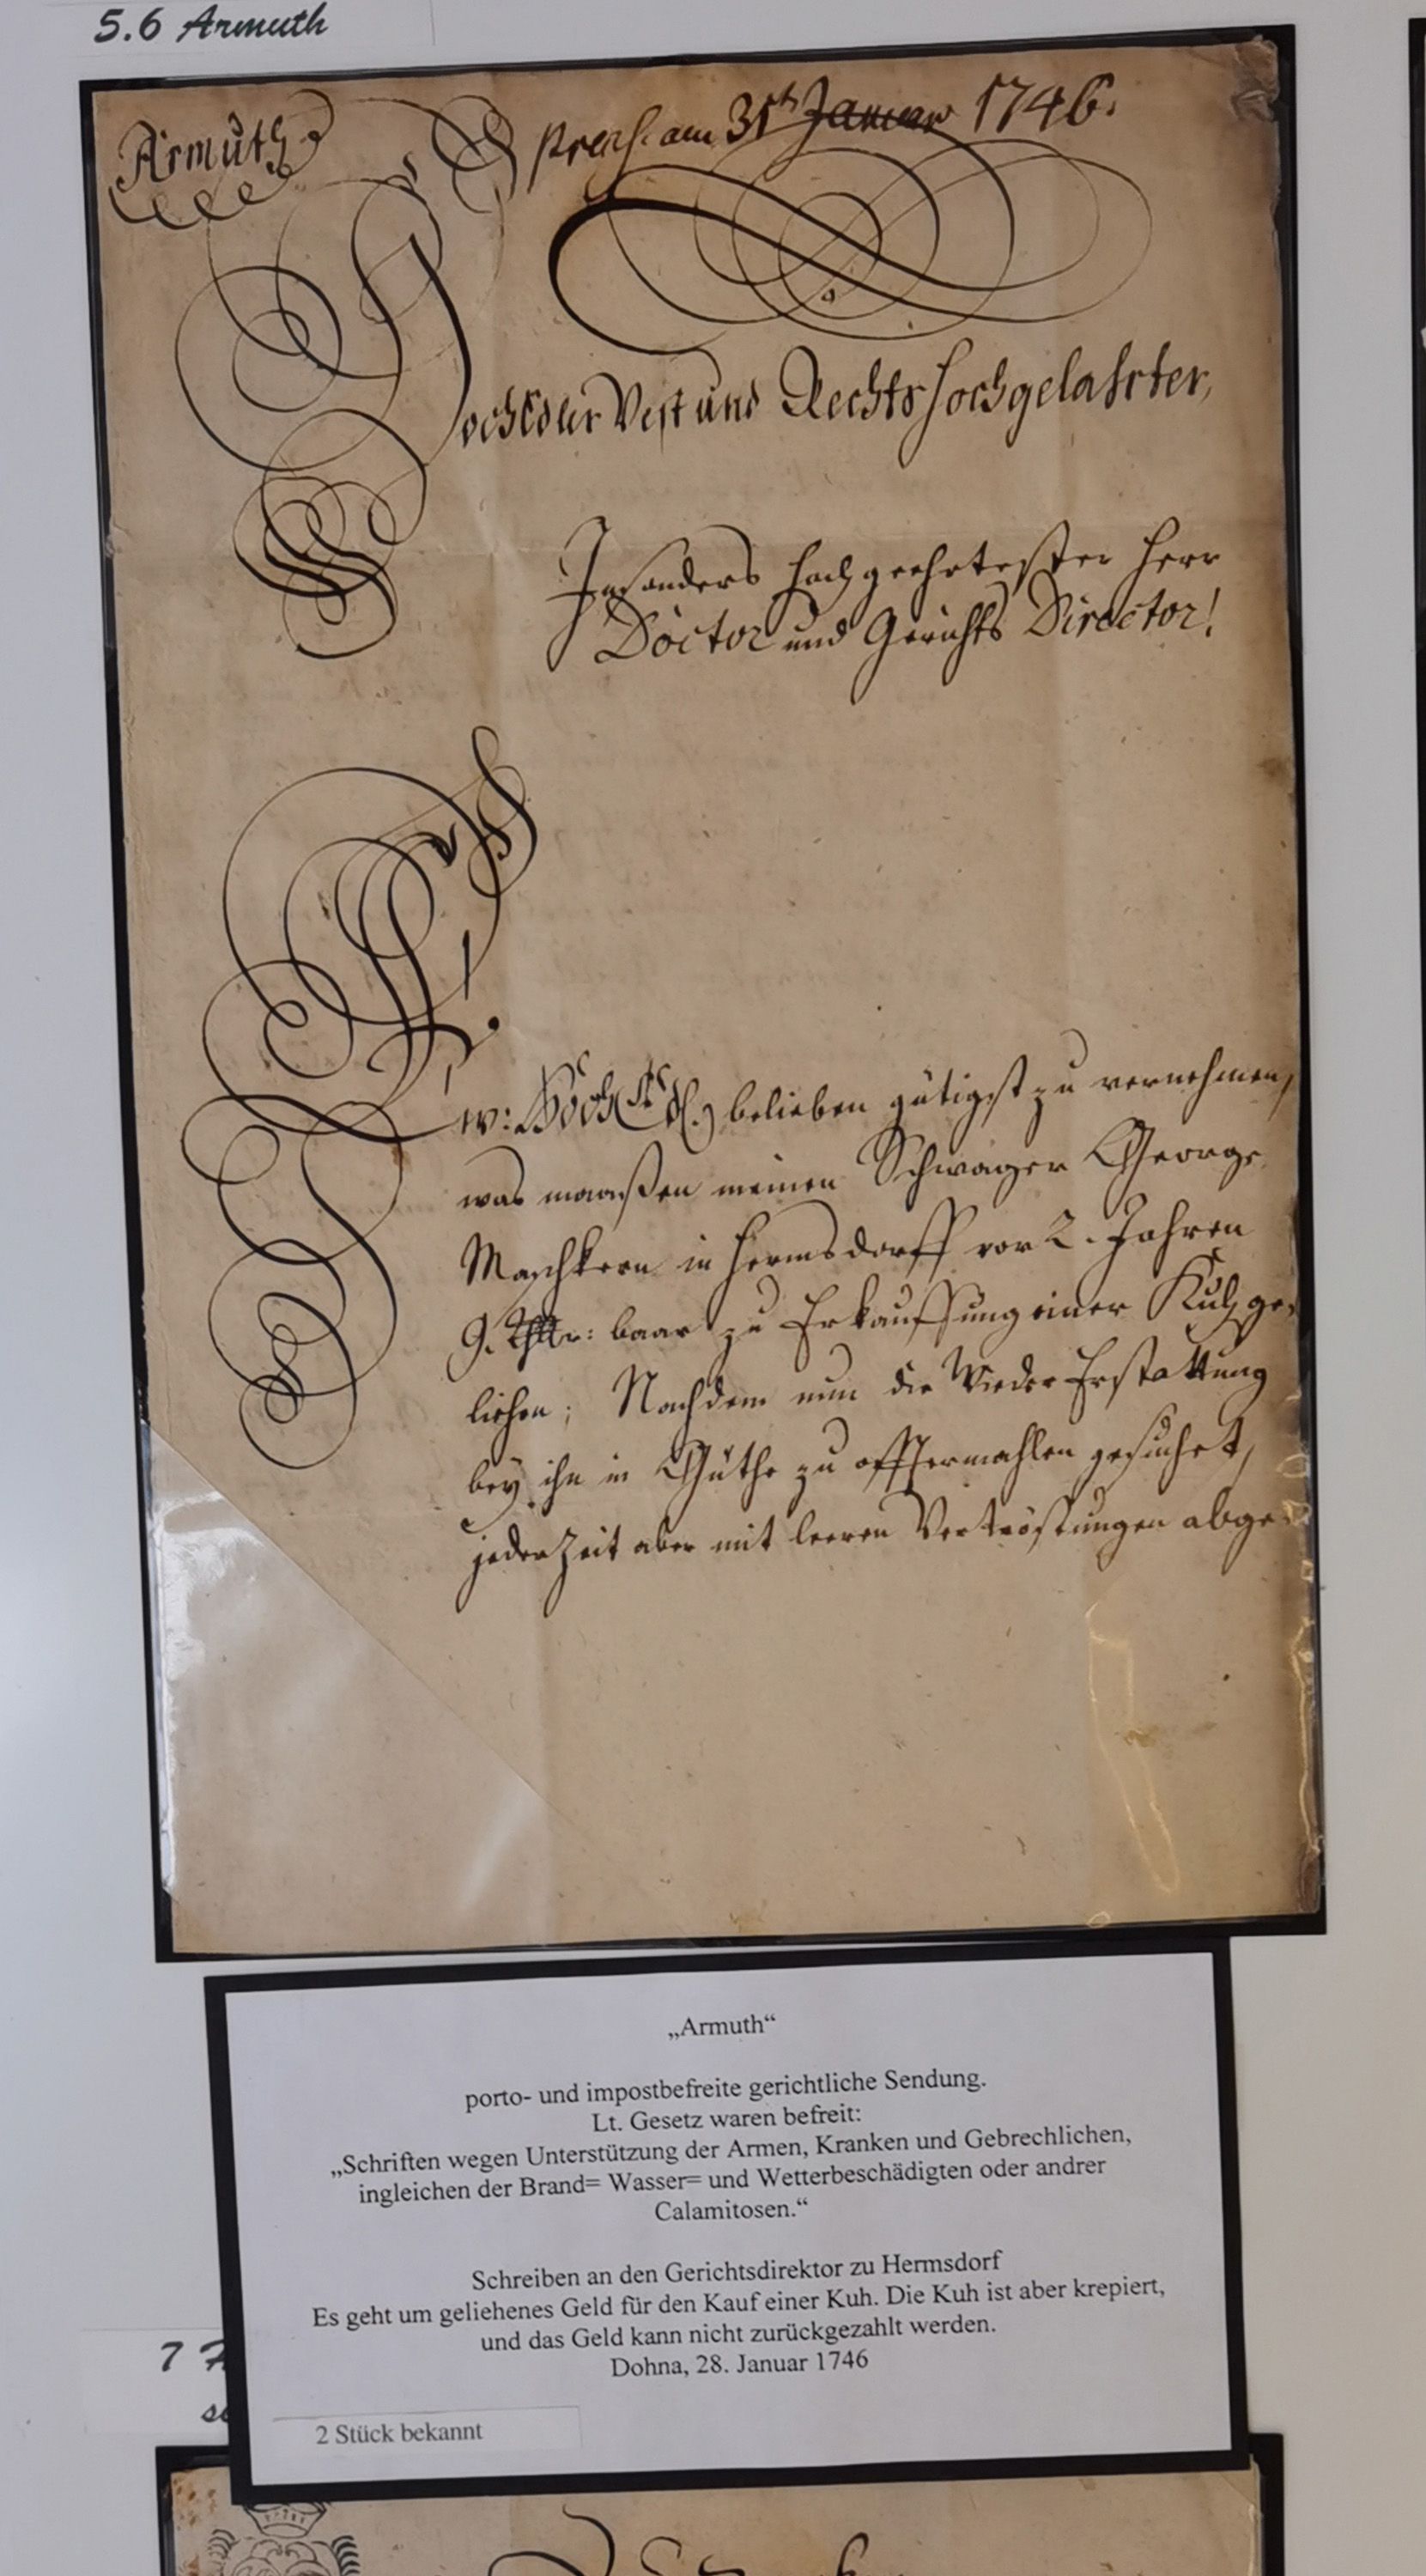 5.6 Armuth
Armuth
præs. am 31t Januar 1746.
HochEdler Vest und Rechtshochgelahrter,
Insonders hochgeehrtester Herr
Doctor und Gerichts Director!
Ew: HochEdl. belieben gütigst zu vernehmen,
was maaßen meinen Schwager George
Maschkern in Hermsdorff vor 2. Jahren
9. Thlr: baar zu Erkauffung einer Kuh ge-
liehen; Nachdem nun die WiederErstattung
bey ihn in Güthe zu offtermahlen gesuchet,
jederzeit aber mit leeren Vertröstungen abge-
„Armuth“
porto- und impostbefreite gerichtliche Sendung.
Lt. Gesetz waren befreit:
„Schriften wegen Unterstützung der Armen, Kranken und Gebrechlichen,
ingleichen der Brand= Wasser= und Wetterbeschädigten oder andrer
Calamitosen.“
Schreiben an den Gerichtsdirektor zu Hermsdorf
Es geht um geliehenes Geld für den Kauf einer Kuh. Die Kuh ist aber krepiert,
und das Geld kann nicht zurückgezahlt werden.
Dohna, 28. Januar 1746
2 Stück bekannt
7